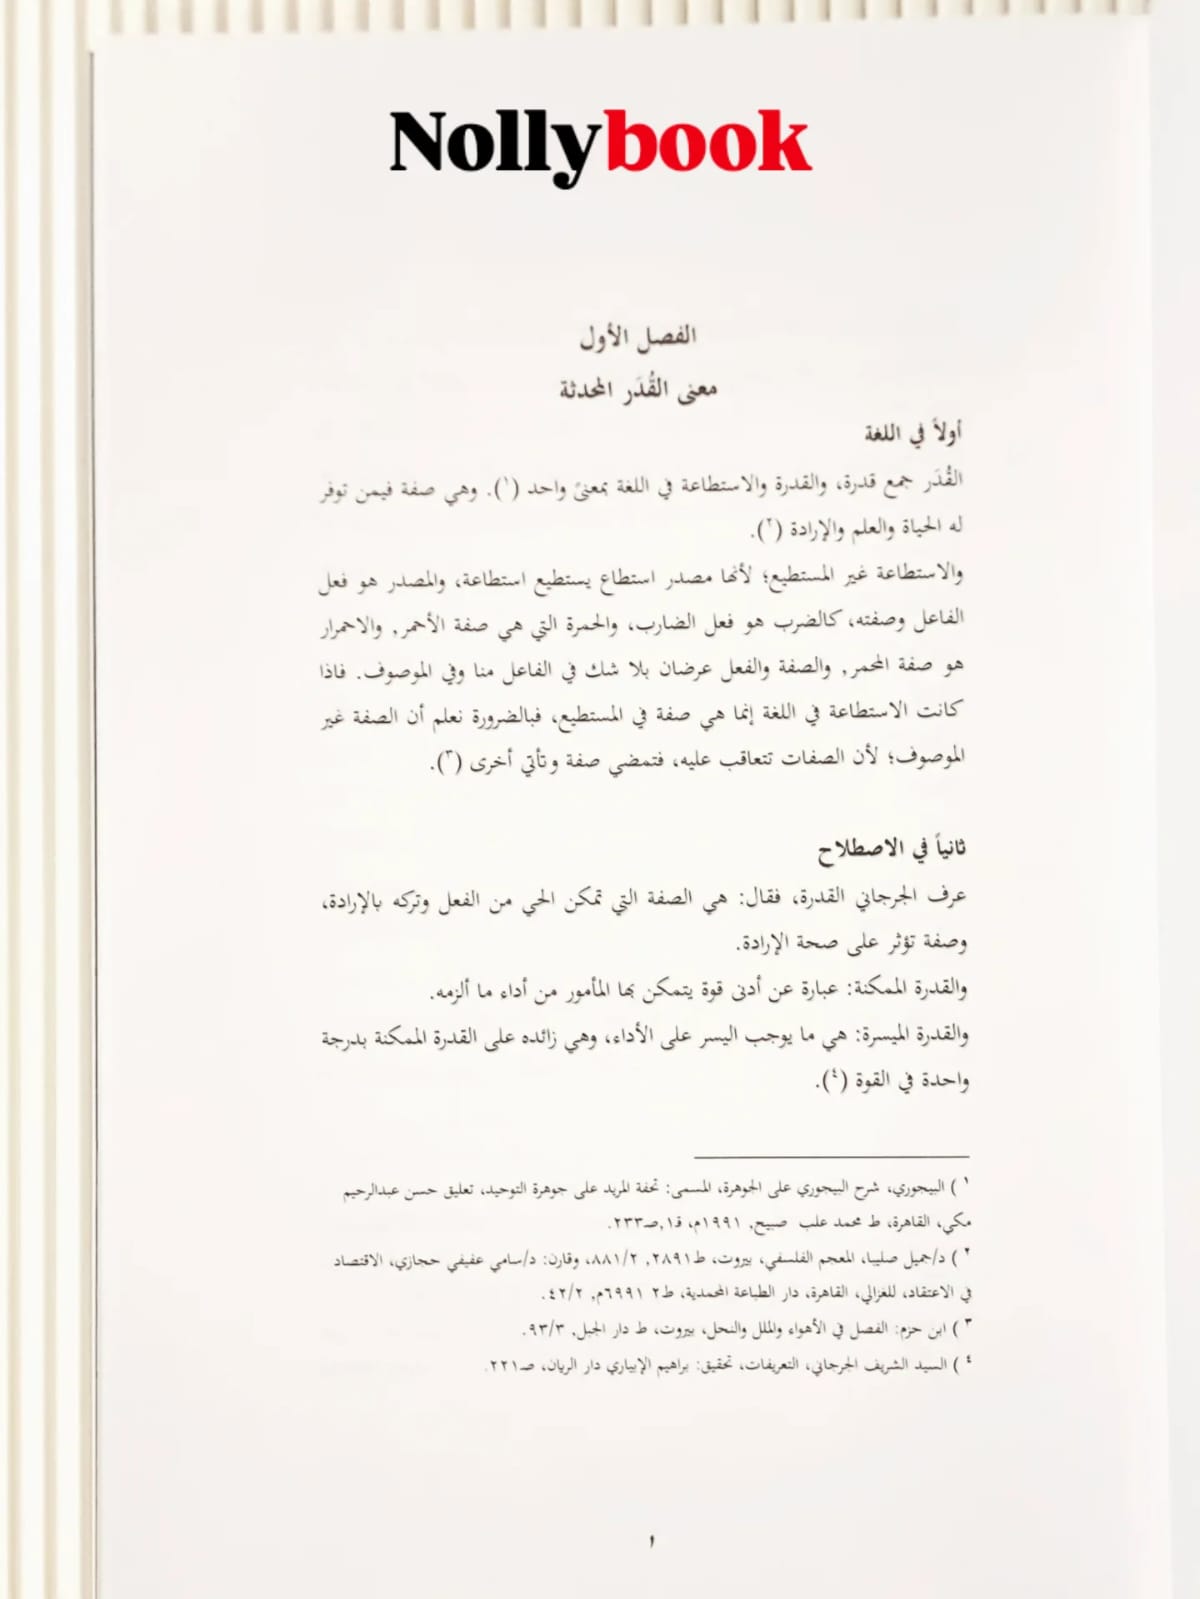 Nollybook
الفصل الأول
معنى القُدَر المحدثة
أولاً في اللغة
القُدَر جمع قدرة، والقدرة والاستطاعة في اللغة بمعنىً واحد (١). وهي صفة فيمن توفر
له الحياة والعلم والإرادة (٢).
والاستطاعة غير المستطيع؛ لأنها مصدر استطاع يستطيع استطاعة، والمصدر هو فعل
الفاعل وصفته، كالضرب هو فعل الضارب، والحمرة التي هي صفة الأحمر, والاحمرار
هو صفة المحمر, والصفة والفعل عرضان بلا شك في الفاعل منا وفي الموصوف. فاذا
كانت الاستطاعة في اللغة إنما هي صفة في المستطيع، فبالضرورة نعلم أن الصفة غير
الموصوف؛ لأن الصفات تتعاقب عليه، فتمضي صفة وتأتي أخرى (٣).
ثانياً في الاصطلاح
عرف الجرجاني القدرة، فقال: هي الصفة التي تمكن الحي من الفعل وتركه بالإرادة،
وصفة تؤثر على صحة الإرادة.
والقدرة الممكنة: عبارة عن أدنى قوة يتمكن بها المأمور من أداء ما ألزمه.
والقدرة الميسرة: هي ما يوجب اليسر على الأداء، وهي زائده على القدرة الممكنة بدرجة
واحدة في القوة (٤).
١ ) البيجوري، شرح البيجوري على الجوهرة، المسمى: تحفة المريد على جوهرة التوحيد، تعليق حسن عبدالرحيم
مكي، القاهرة، ط محمد علب صبيح, ١٩٩١م، ق١,صـ٢٣٣.
٢ ) د/جميل صليبا، المعجم الفلسفي، بيروت، ط٢٨٩١, ٨٨١/٢، وقارن: د/سامي عفيفي حجازي، الاقتصاد
في الاعتقاد، للغزالي، القاهرة، دار الطباعة المحمدية، ط٢ ٦٩٩١م, ٤٢/٢.
٣ ) ابن حزم: الفصل في الأهواء والملل والنحل، بيروت، ط دار الجبل, ٩٣/٣.
٤ ) السيد الشريف الجرجاني، التعريفات، تحقيق: براهيم الإبياري دار الريان، صـ٢٢١.
١